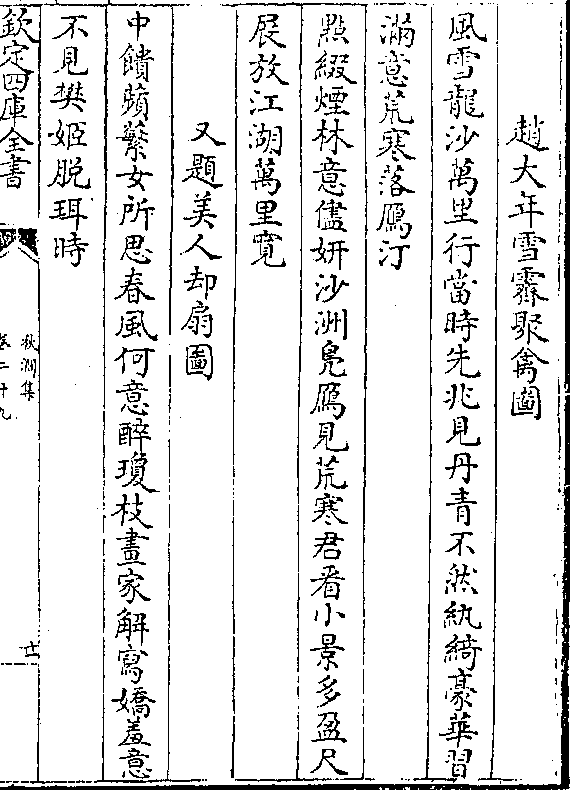 趙大年雪霽聚禽圖
風雪龍沙萬里行當時先兆見丹青不然紈綺豪華習
滿意荒寒落鴈汀
點綴煙林意儘妍沙洲鳬鴈見荒寒君看小景多盈尺
展放江湖萬里寛
又題美人却扇圖
中饋蘋蘩女所思春風何意醉瓊枝畫家解寫嬌羞意
不見樊姬脱珥時
欽定四庫全書
秋澗集
卷二十九